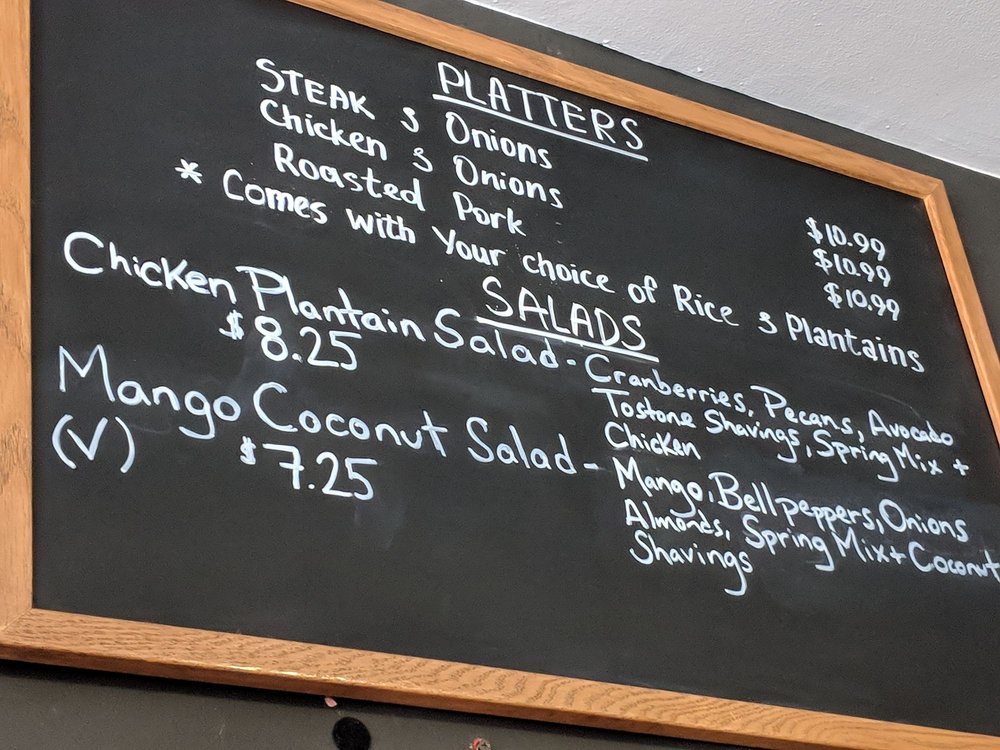 PLATTERS
STEAK & Onions $10.99
Chicken & Onions $10.99
Roasted Pork $10.99
* Comes with Your choice of Rice & Plantains
SALADS
Chicken Plantain Salad - Cranberries, Pecans, Avocado
$8.25 Tostone Shavings, Spring Mix +
Chicken
Mango Coconut Salad - Mango, Bell peppers, Onions
(V) $7.25 Almonds, Spring Mix + Coconut
Shavings